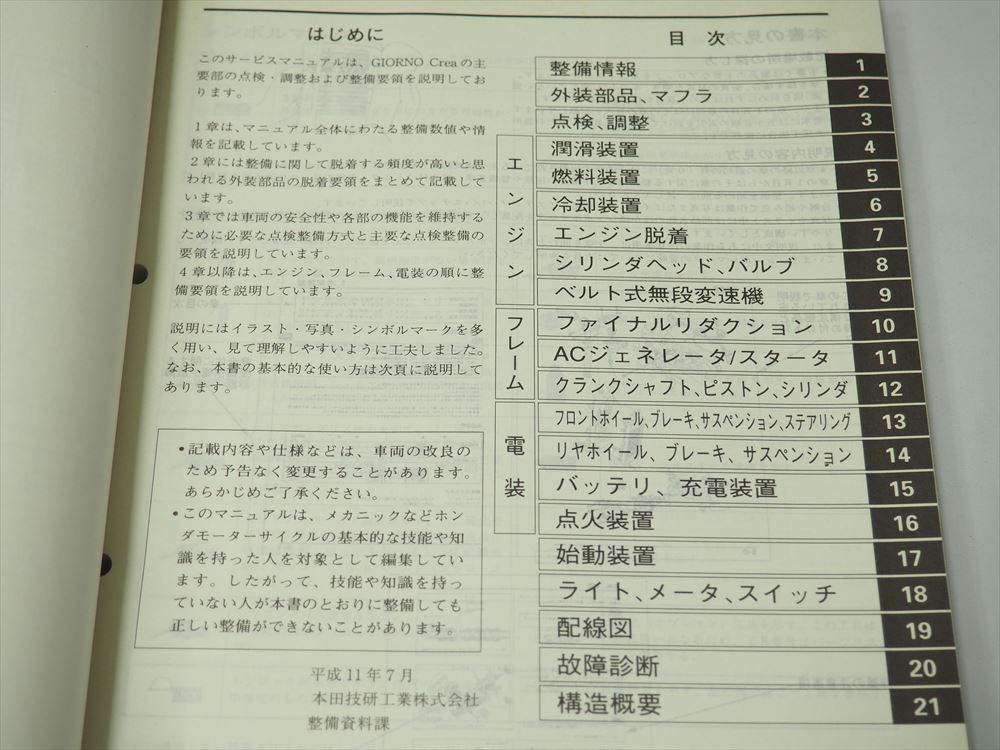 はじめに
このサービスマニュアルは、GIORNO Creaの主
要部の点検・調整および整備要領を説明してお
ります。
1章は、マニュアル全体にわたる整備数値や情
報を記載しています。
2章には整備に関して脱着する頻度が高いと思
われる外装部品の脱着要領をまとめて記載して
います。
3章では車両の安全性や各部の機能を維持する
ために必要な点検整備方式と主要な点検整備の
要領を説明しています。
4章以降は、エンジン、フレーム、電装の順に整
備要領を説明しています。
説明にはイラスト・写真・シンボルマークを多
く用い、見て理解しやすいように工夫しました。
なお、本書の基本的な使い方は次頁に説明して
あります。
•記載内容や仕様などは、車両の改良の
ため予告なく変更することがあります。
あらかじめご了承ください。
•このマニュアルは、メカニックなどホン
ダモーターサイクルの基本的な技能や知
識を持った人を対象として編集してい
ます。したがって、技能や知識を持っ
ていない人が本書のとおりに整備しても
正しい整備ができないことがあります。
平成11年7月
本田技研工業株式会社
整備資料課
目 次
整備情報 1
外装部品、マフラ 2
点検、調整 3
エンジン
潤滑装置 4
燃料装置 5
冷却装置 6
エンジン脱着 7
シリンダヘッド、バルブ 8
ベルト式無段変速機 9
フレーム
ファイナルリダクション 10
ACジェネレータ/スタータ 11
クランクシャフト、ピストン、シリンダ 12
電装
フロントホイール、ブレーキ、サスペンション、ステアリング 13
リヤホイール、ブレーキ、サスペンション 14
バッテリ、充電装置 15
点火装置 16
始動装置 17
ライト、メータ、スイッチ 18
配線図 19
故障診断 20
構造概要 21